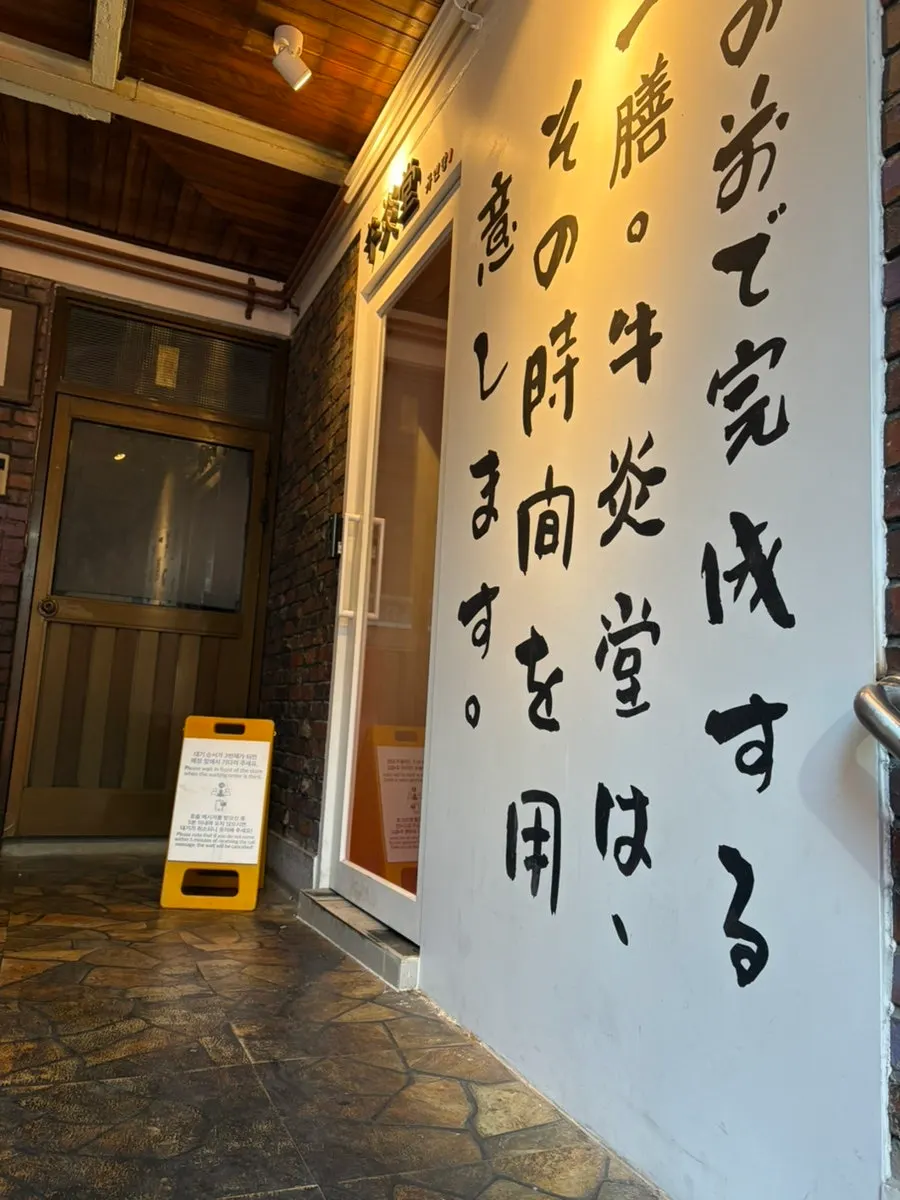 の前で完成する
一膳。牛炎堂は、
その時間を用
意します。
牛炎堂 규엔당
대기 순서가 3번째가 되면
매장 앞에서 기다려 주세요.
Please wait in front of the store
when the waiting order is third.
호출 메시지를 받으신 후
5분 이내에 오지 않으시면
대기가 취소되니 주의해 주세요!
Please note that if you do not come
within 5 minutes of receiving the call
message, the wait will be cancelled